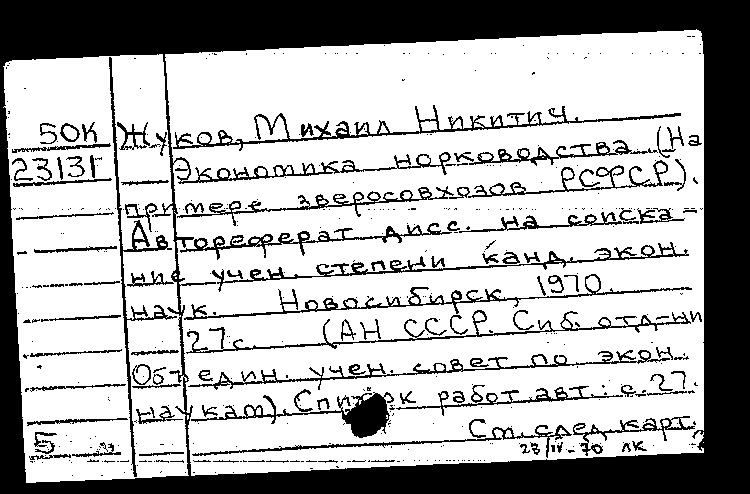 50К Жуков, Михаил Никитич.
2313Г Экономика норководства (На
примере зверосовхозов РСФСР).
Автореферат дисс. на соиска-
ние учен. степени канд. экон.
наук. Новосибирск, 1970.
27с. (АН СССР. Сиб. отд-ни
Объедин. учен. совет по экон.
наукам). Список работ авт.: с.27.
5 См. след. карт.
23/IV-70 ЛК